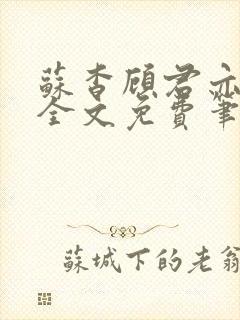 蘇杳顧君亦
全文免費筆
蘇城下的老翁